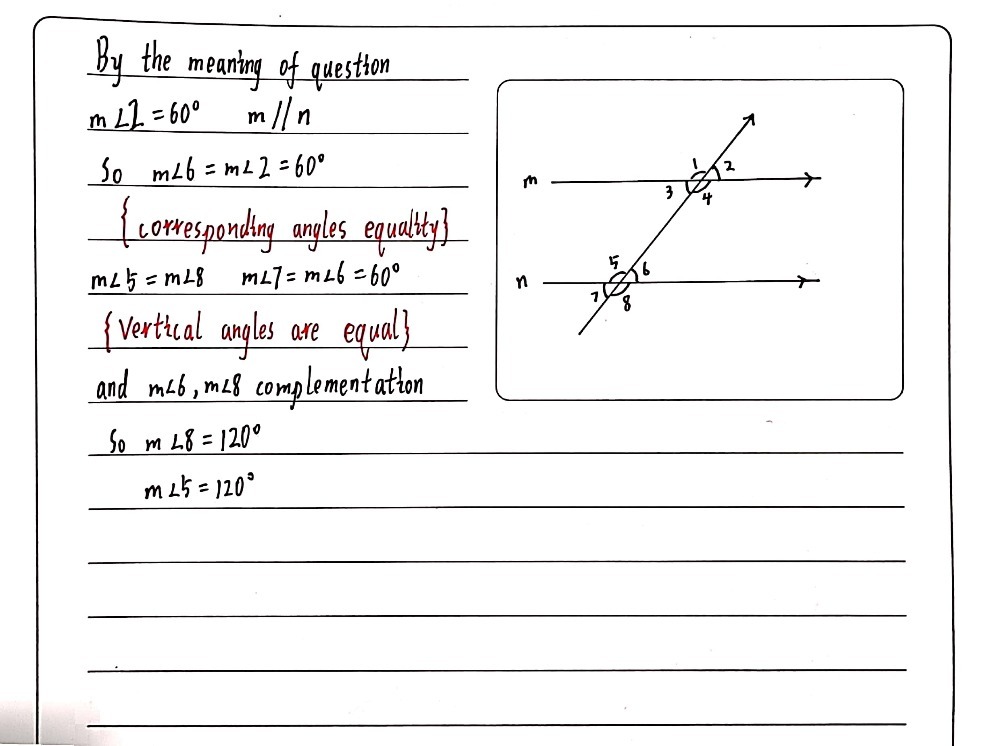 By the meaning of question
m∠2 = 60° m // n
So m∠6 = m∠2 = 60°
{corresponding angles equality}
m∠5 = m∠8 m∠7 = m∠6 = 60°
{Vertical angles are equal}
and m∠6, m∠8 complementation
So m∠8 = 120°
m∠5 = 120°
1 2
m
3 4
5 6
n
7 8